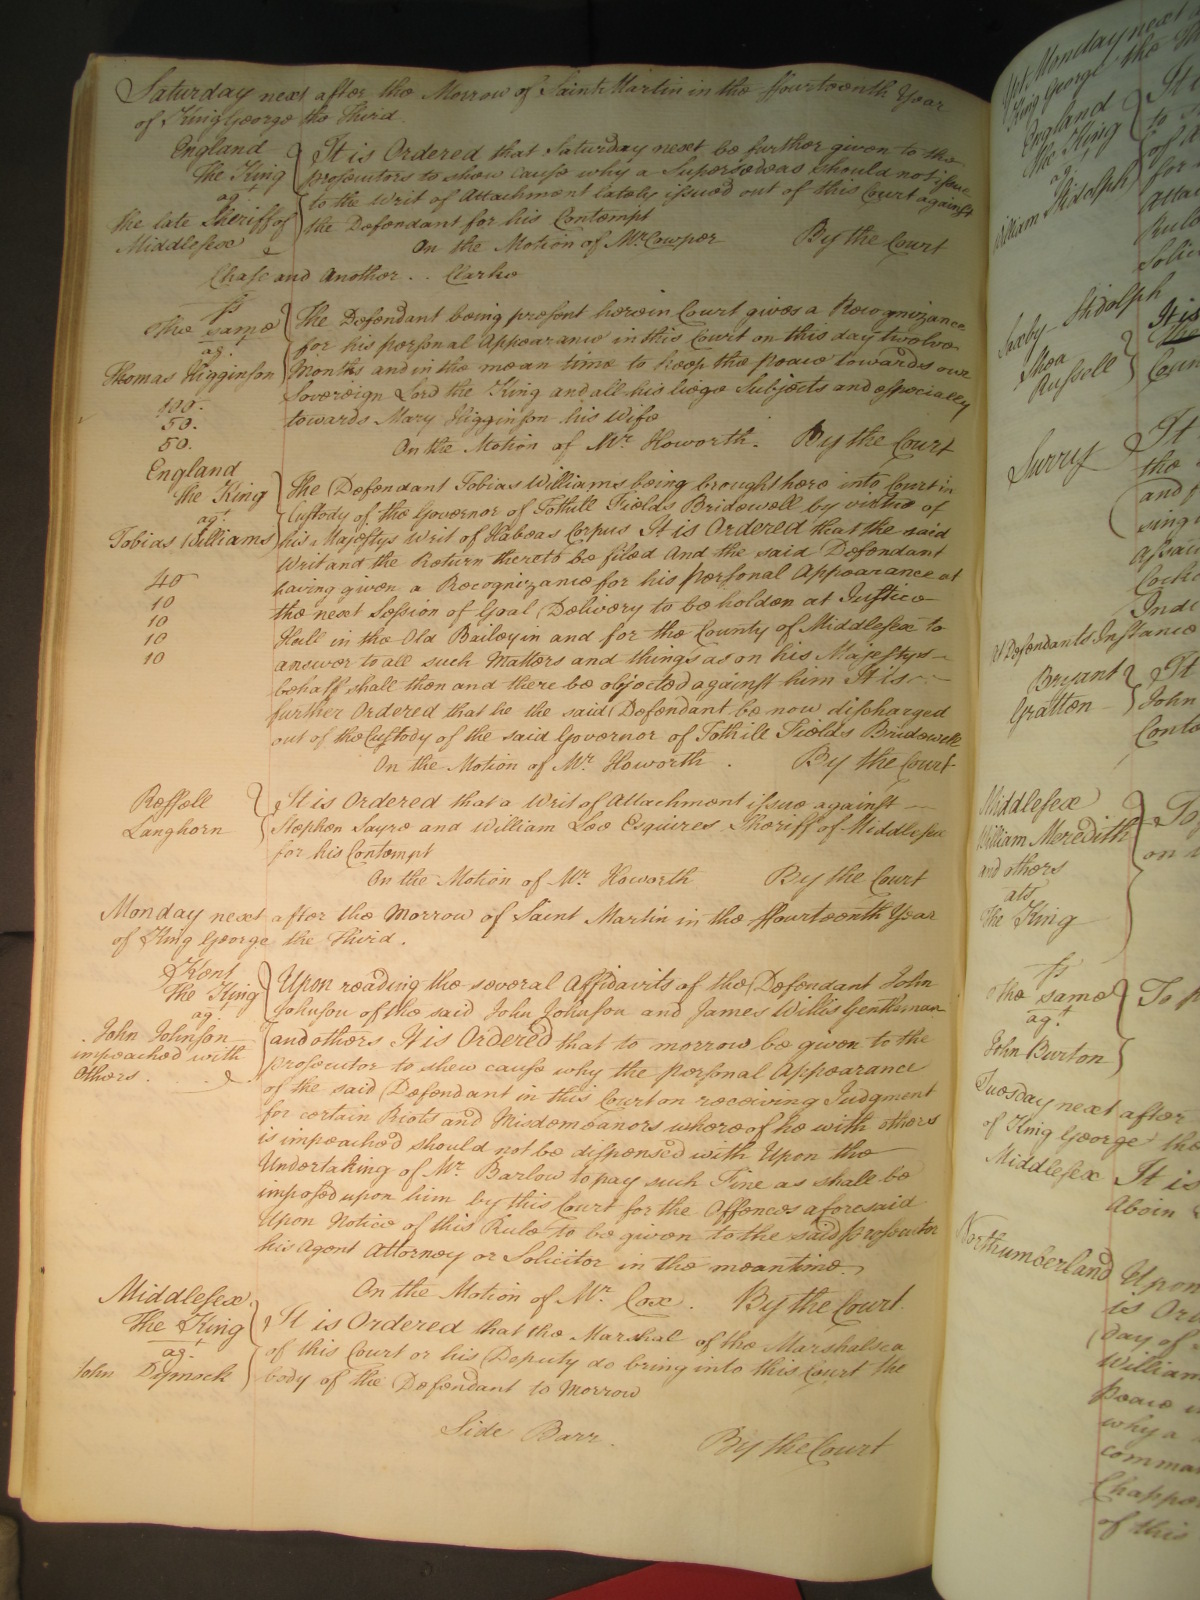 Saturday next after the Morrow of Saint Martin in the ffourteenth Year
of King George the Third.
England
The King
agt
the late Sheriff of
Middlesex
It is Ordered that Saturday next be further given to the
prosecutors to show cause why a Supersedeas should not issue
to the Writ of Attachment lately issued out of this Court against
the Defendant for his Contempt
On the Motion of Mr. Cowper By the Court
Chase and Another . . Clarke
ss
The same
agt
Thomas Higginson
100.
50.
50.
The Defendant being present here in Court gives a Recognizance
for his personal Appearance in this Court on this day twelve
Months and in the mean time to keep the peace towards our
Sovereign Lord the King and all his liege Subjects and especially
towards Mary Higginson his Wife
On the Motion of Mr. Howorth. By the Court
England
the King
agt
Tobias Williams
40
10
10
10
10
The Defendant Tobias Williams being brought here into Court in
Custody of the Governor of Tothill Fields Bridewell by virtue of
his Majestys Writ of Habeas Corpus It is Ordered that the said
Writ and the Return thereto be filed And the said Defendant
having given a Recognizance for his personal Appearance at
the next Session of Goal Delivery to be holden at Justice
Hall in the Old Bailey in and for the County of Middlesex to
answer to all such Matters and things as on his Majestys
behalf shall then and there be objected against him It is
further Ordered that he the said Defendant be now discharged
out of the Custody of the said Governor of Tothill Fields Bridewell
On the Motion of Mr. Howorth . By the Court
Reffell
Langhorn
It is Ordered that a Writ of Attachment issue against
Stephen Sayre and William Lee Esquires Sheriff of Middlesex
for his Contempt
On the Motion of Mr. Howorth By the Court
Monday next after the Morrow of Saint Martin in the ffourteenth Year
of King George the Third.
Kent
The King
agt
John Johnson
impeached with
Others
Upon reading the several Affidavits of the Defendant John
Johnson of the said John Johnson and James Willis Gentleman
and others It is Ordered that to morrow be given to the
prosecutor to shew cause why the personal Appearance
of the said Defendant in this Court on receiving Judgment
for certain Riots and Misdemeanors whereof he with others
is impeached should not be dispensed with Upon the
Undertaking of Mr. Barlow to pay such Fine as shall be
imposed upon him by this Court for the Offences aforesaid
Upon Notice of this Rule to be given to the said prosecutor
his Agent Attorney or Solicitor in the meantime.
On the Motion of Mr. Cox. By the Court.
Middlesex.
The King
agt
John Dymock
It is Ordered that the Marshal of the Marshalsea
of this Court or his Deputy do bring into this Court the
body of the Defendant to Morrow
Side Barr. By the Court
Monday next
King George the
England
The King
agt
William Stidolph
Saxby Stidolph
Shea
Russell
It is
Surry
It
the
and
At Defendants Instance
Bryant
Gratton
It
John
Middlesex
William Meredith
and others
ats
The King
To
on
ss
the same
agt
John Burton
To
Tuesday next after
of King George the
Middlesex It is
Northumberland Upon
is
day of
William
peace
why a
of this